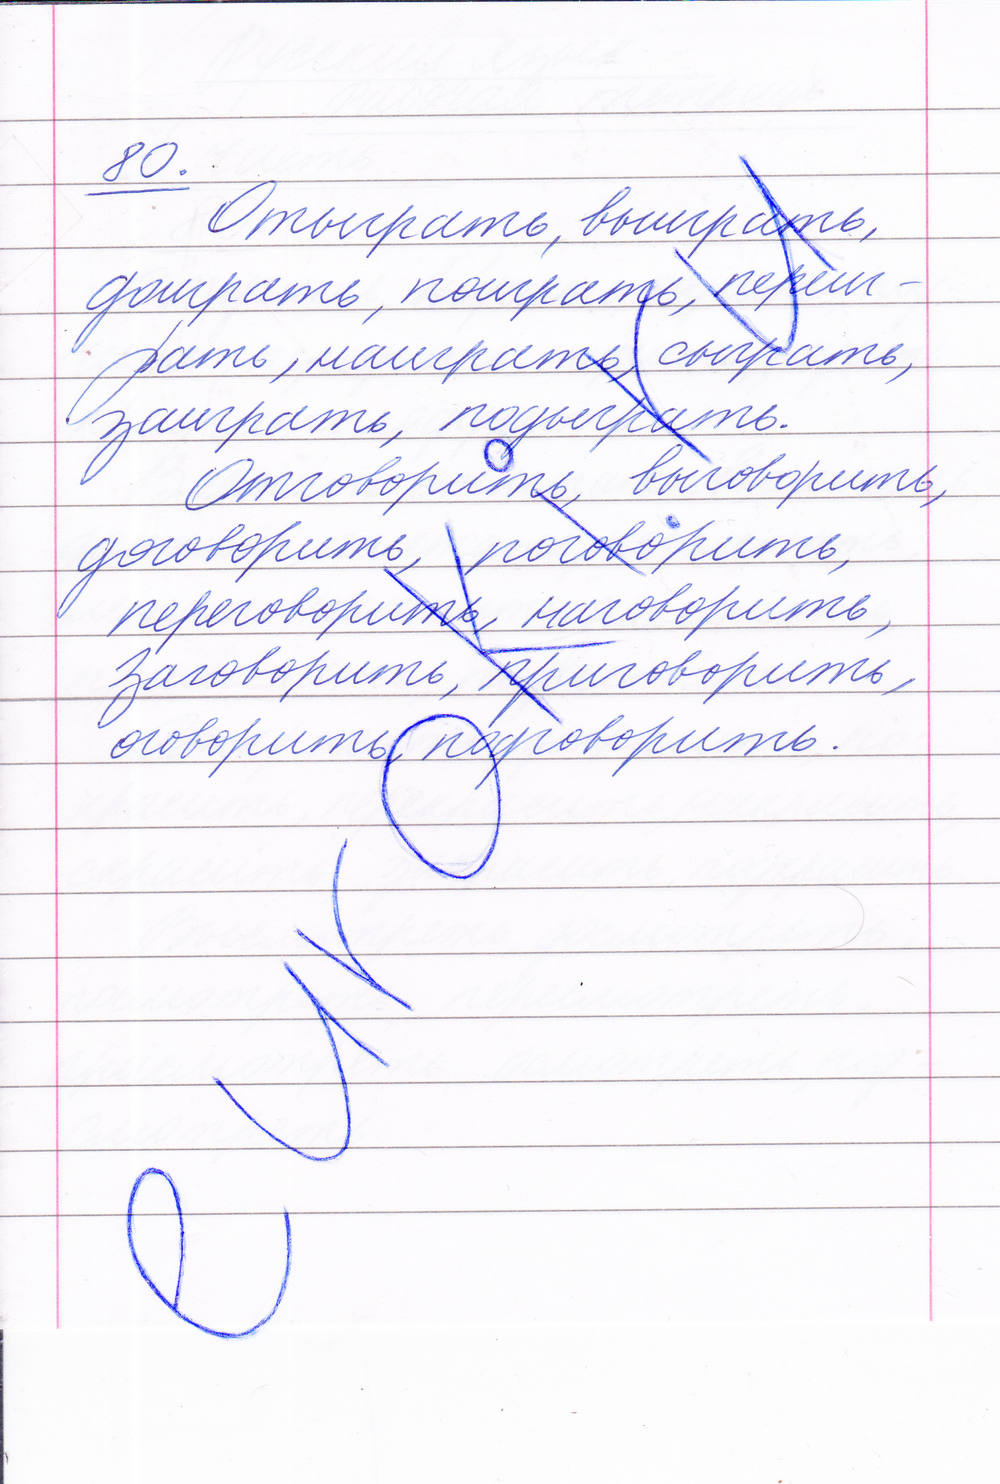 80.
Отыграть, выиграть,
доиграть, поиграть, переиг-
рать, наиграть, сыграть,
заиграть, подыграть.
Отговорить, выговорить,
договорить, поговорить,
переговорить, наговорить,
заговорить, приговорить,
оговорить, подговорить.
еигоКК.ги